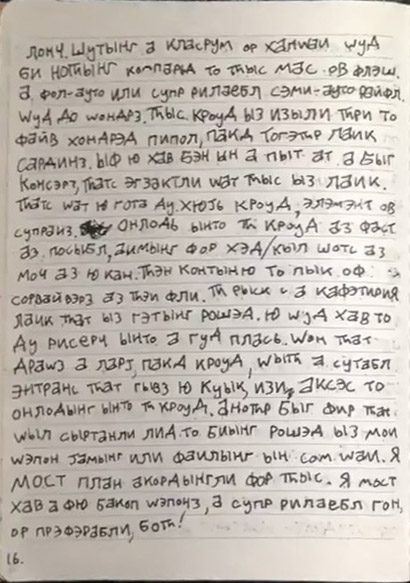 ЛОНЧ. ШУТЫНГ А КЛАСРУМ ОР ХАЛWAИ WУД
БИ НОТЫНГ КОМПАРЬД ТО THЫС МАС ОВ ФЛЭШ.
А ФОЛ-АУТО ИЛИ СУПР РИЛАЕБЛ СЭМИ-АУТО РАЙФЛ
WУД ДО WОНДРЗ. THЫС КРОУД ЫЗ ИЗЫЛИ THРИ ТО
ФАЙВ ХОНАРЭД ПИПОЛ, ПАКД ТОГЭТHР ЛАИК
САРДИНЗ. ЫФ Ю ХАВ БЭН ЫН А ПЫТ АТ А БЫГ
КОНСЭРТ, THATС ЭГЗАКТЛИ WAT THЫС ЫЗ ЛАИК.
THATС WAT Ю ГОТА ДУ. ХЮЗЬ КРОУД, ЭЛЭМЭНТ ОВ
СУПРАИЗ. ОНЛОДЬ ЫНТО TH КРОУД АЗ ФАСТ
АЗ ПОСЫБЛ, АИМЫНГ ФОР ХЭД/КЫЛ ШОТС АЗ
МОЧ АЗ Ю КАН. THЭН КОНТЫНЮ ТО ПЫК ОФ
СОРВАЙВЭРЗ АЗ THЭИ ФЛИ. TH РЫСК С А КАФЭТИРИЯ
ЛАИК THAT ЫЗ ГЭТЫНГ РОШЭД. Ю WУД ХАВ ТО
ДУ РИСЕРЧ ЫНТО А ГУД ПЛАСЬ. WОН THAT
ДРАWЗ А ЛАРЗ, ПАКД КРОУД, WЫTH А СУТАБЛ
ЭНТРАНС THAT ГЫВЗ Ю КУЫК, ИЗИ, АКСЭС ТО
ОНЛОДЫНГ ЫНТО TH КРОУД. АНОТHР БЫГ ФИР THAT
WЫЛ СЫРТАНЛИ ЛИД ТО БИЫНГ РОШЭД ЫЗ МОИ
WЭПОН ЗАМЫНГ ИЛИ ФАИЛЫНГ ЫН СОМ WAИ. Я
МОСТ ПЛАН АКОРДЫНГЛИ ФОР THЫС. Я МОСТ
ХАВ А ФЮ БАКОП WЭПОНЗ, А СУПР РИЛАЕБЛ ГОН,
ОР ПРЭФЭРАБЛИ, БОТH!
16.